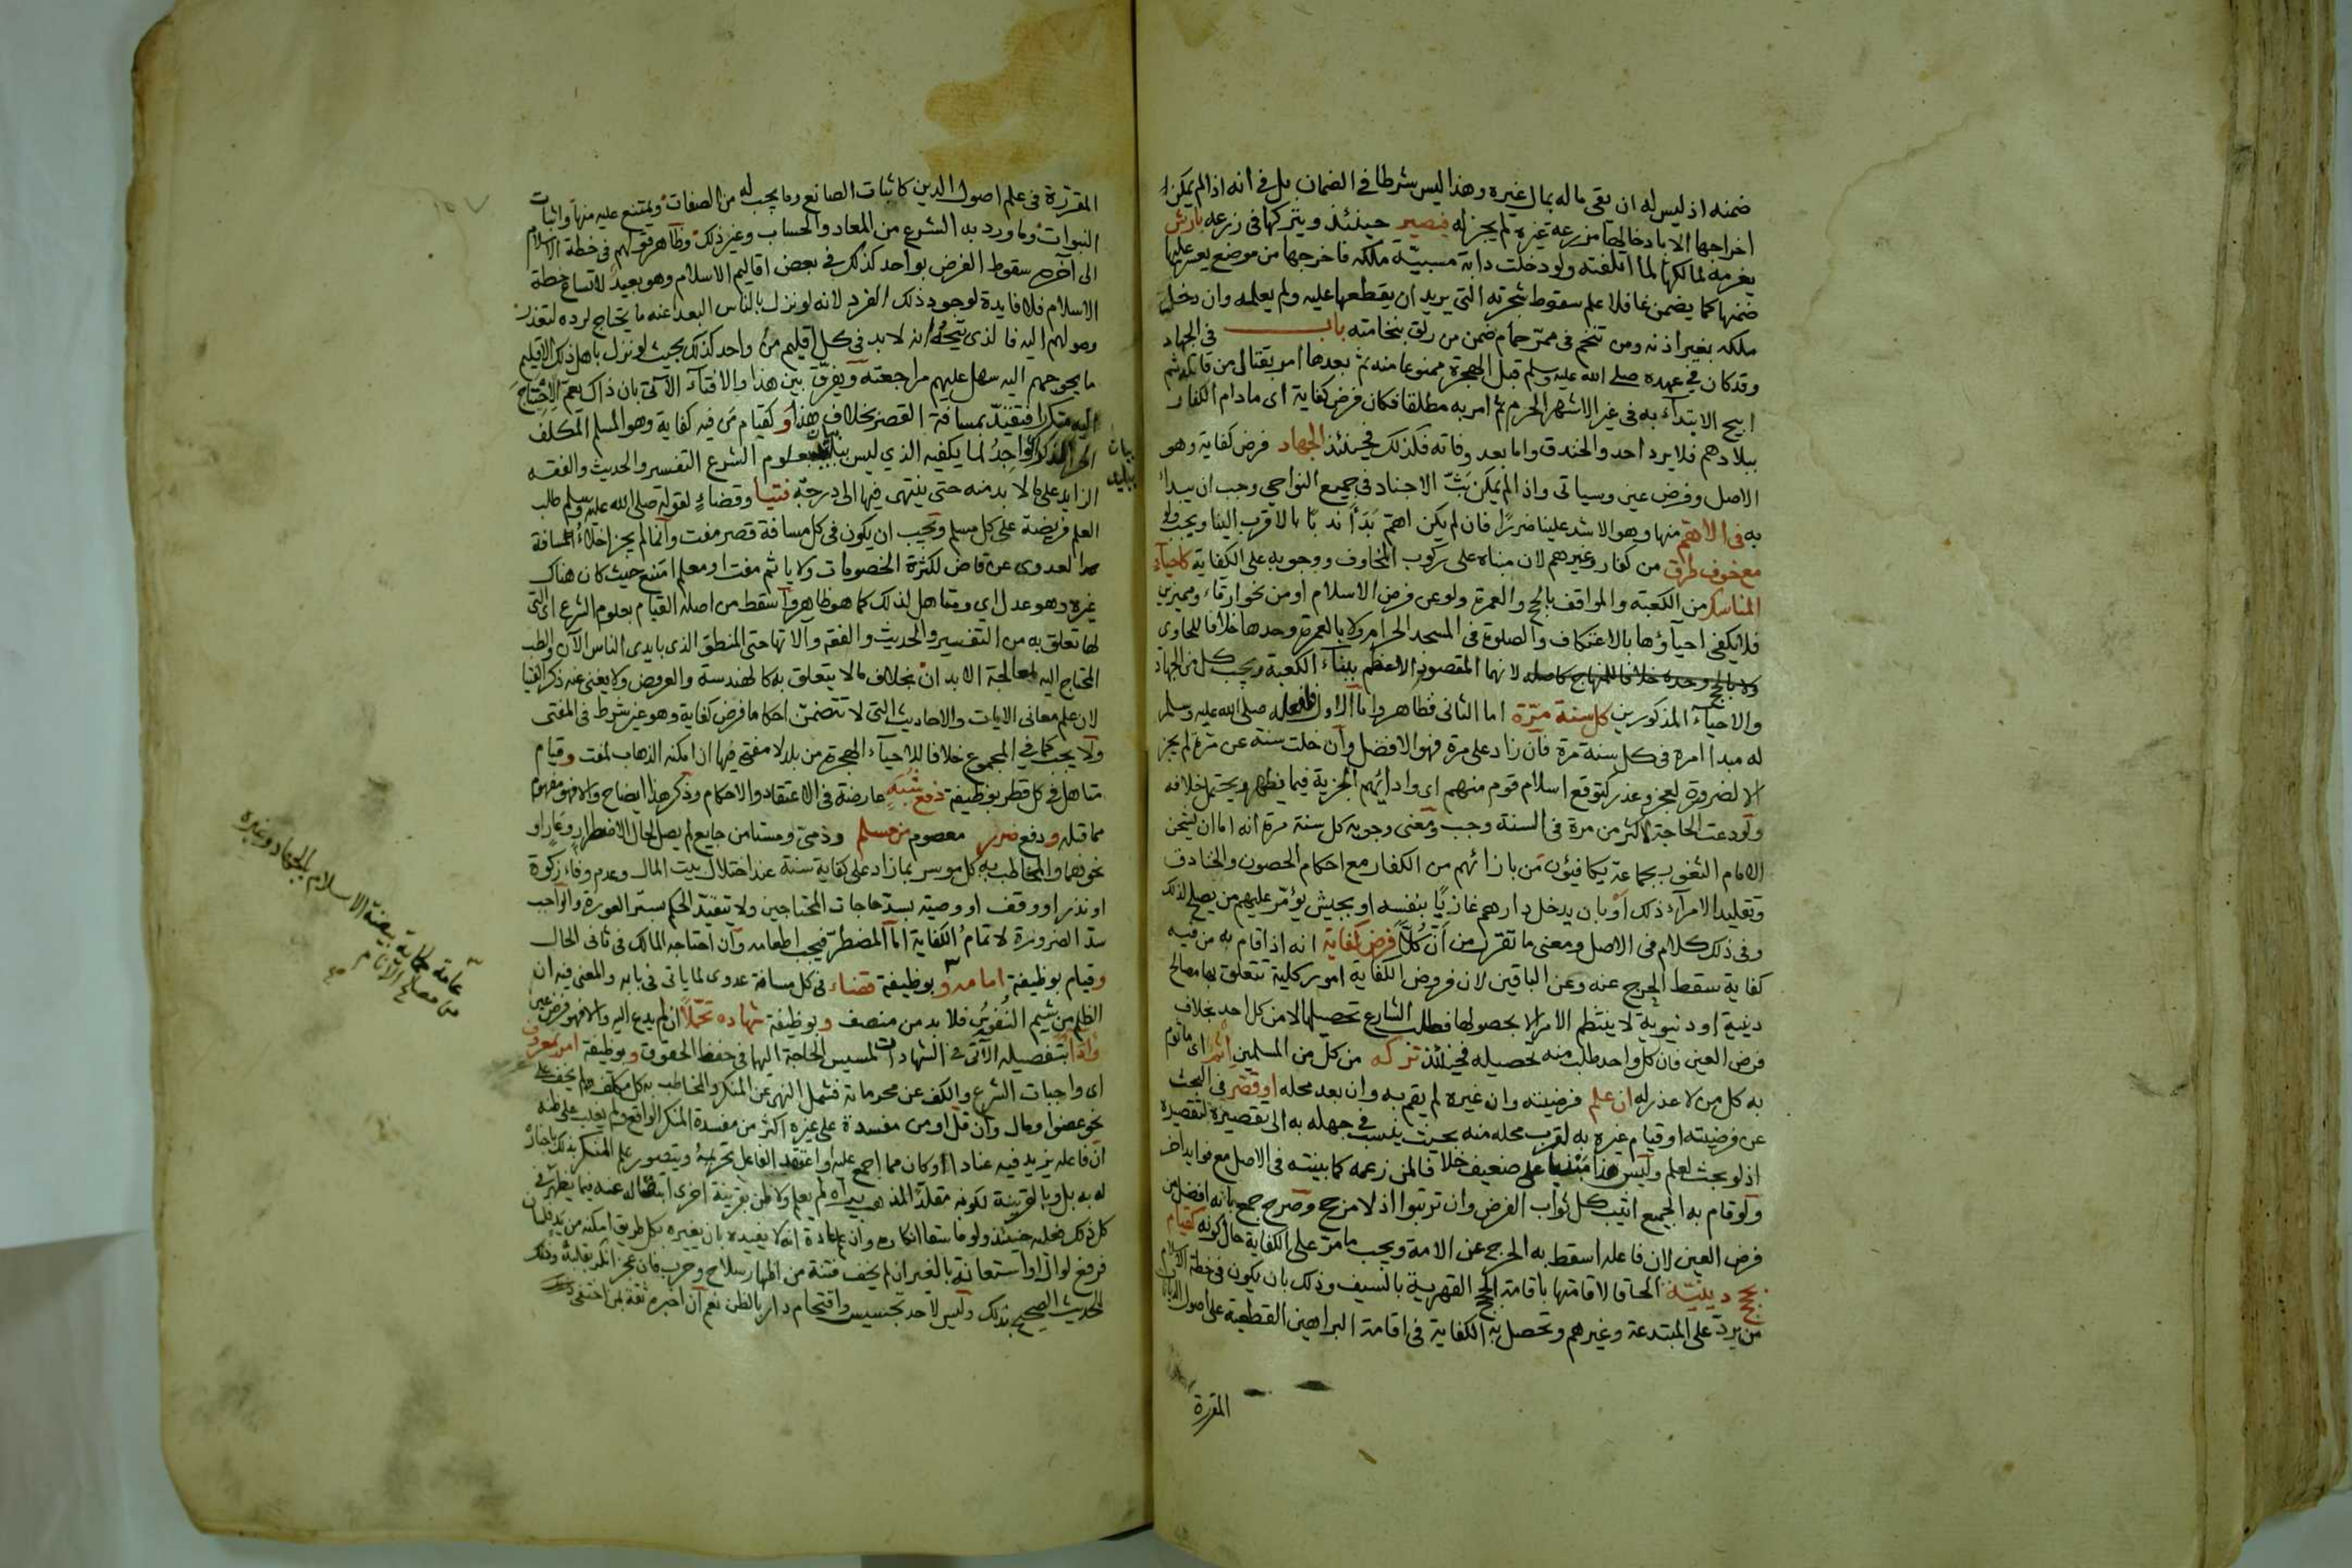 ضمنه اذ ليس له ان يقى ماله بمال غيره وهذا ليس شرطا في الضمان بل في انه اذا لم يمكن
اخراجها الا بادخالها مزرعة غيره لم يجز له فيصير حينئذ ويتركها في زرعه بارش
يغرمه لمالكها لما اتلفته ولو دخلت دابة مسيبة ملكه فاخرجها من موضع يعسر عليها
ضمنها كما يضمن غافلا علم سقوط شجرته التي يريد ان يقطعها عليه ولم يعلمه وان دخل
ملكه بغير اذنه ومن تنخم في ممر حمام ضمن من زلق بنخامته باب في الجهاد
وقد كان في عهده صلى الله عليه وسلم قبل الهجرة ممنوعا منه ثم بعدها امر بقتال من قاتله ثم
ابيح الابتداء به في غير الاشهر الحرم ثم امر به مطلقا فكان فرض كفاية اى مادام الكفار
ببلادهم فلا يرد احد والخندق واما بعد وفاته فكذلك فحينئذ الجهاد فرض كفاية وهو
الاصل وفرض عين وسياتى واذا لم يمكن بث الاجناد في جميع النواحي وجب ان يبدأ
به في الاهم منها وهو الاشد علينا ضررا فان لم يكن اهم بدأ ندبا بالاقرب الينا ويجب ولو
مع خوف طرق من كفار وغيرهم لان مبناه على ركوب المخاوف ووجوبه على الكفاية كاحياء
المناسك من الكعبة والمواقف بالحج والعمرة ولو عن فرض الاسلام او من نحو ارقاء ومميزين
فلا يكفى احياؤها بالاعتكاف والصلوة في المسجد الحرام ولا بالعمرة وحدها خلافا للحاوى
ولا بالحج وحده خلافا للمنهاج كاصله لانهما المقصود الاعظم ببناء الكعبة ويجب كل من الجهاد
والاحياء المذكورين كل سنة مرة اما الثاني فظاهر واما الاول فلفعله صلى الله عليه وسلم
له مبدا امره في كل سنة مرة فان زاد على مرة فهو الافضل وان خلت سنة عن مرة لم يجز
الا لضرورة لعجز وعذر كتوقع اسلام قوم منهم اى وادائهم الجزية فيما يظهر ويحتمل خلافه
ولو دعت الحاجة لاكثر من مرة في السنة وجب ومعنى وجوبه كل سنة مرة انه اما ان يشحن
الامام الثغور بجماعة يكافيؤن من بازائهم من الكفار مع احكام الحصون والخنادق
وتقليد الامراء ذلك او بان يدخل دارهم غازيا بنفسه او بجيش يؤمر عليهم من يصلح لذلك
وفى ذلك كلام فى الاصل ومعنى ما تقرر من ان كلا فرض كفاية انه اذا قام به من فيه
كفاية سقط الحرج عنه وعن الباقين لان فروض الكفاية امور كلية تتعلق بها مصالح
دينية او دنيوية لا ينتظم الامر الا بحصولها فطلب الشارع تحصيلها لا من كل احد بخلاف
فرض العين فان كل واحد طلب منه تحصيله فحينئذ تركه من كل من المسلمين اثم اى ماثوم
به كل من لا عذر له ان علم فرضيته وان غيره لم يقم به وان بعد محله او قصر في البحث
عن فرضيته او قيام غيره به لقرب محله منه بحيث ينسب في جهله به الى تقصيره لتقصيره
اذ لو بحث لعلم وليس هذا مبنيا على ضعيف خلافا لمن زعمه كما بينته في الاصل مع فوايد اخر
ولو قام به الجميع اثيب كل ثواب الفرض وان ترتبوا اذ لا مزجح وصرح جمع بانه افضل من
فرض العين لان فاعله اسقط به الحرج عن الامة ويجب مامر على الكفاية حال كونه كقيام
بحجج دينية الحاقا لاقامتها باقامة الحجج القهرية بالسيف وذلك بان يكون في خطة الاسلام
من يرد على المبتدعة وغيرهم وتحصل به الكفاية في اقامة البراهين القطعية على اصول
المقررة
المقررة فى علم اصول الدين كاثبات الصانع وما يجب له من الصفات ويمتنع عليه منها واثبات
النبوات وما ورد به الشرع من المعاد والحساب وغير ذلك وظاهر قولهم فى خطة الاسلام
الى آخره سقوط الفرض بواحد كذلك في بعض اقاليم الاسلام وهو بعيد لاتساع خطة
الاسلام فلا فايدة لوجود ذلك الفرد لانه لو نزل بالناس البعداعنه ما يحتاج لرده لتعذر
وصولهم اليه فالذى يتجه انه لابد فى كل اقليم من واحد كذلك بحيث لو نزل باهل ذلك الاقليم
ما يحوجهم اليه سهل عليهم مراجعته ويفرق بين هذا والافتاء الآتى بان ذاك يعم الاحتياج
اليه متكررا فتقيد بمسافة القصر بخلاف هذا و كقيام من فيه كفاية وهو المسلم المكلف
الحر الذكر الواجد لما يكفيه الذي ليس ببليد بعلوم الشرع التفسير والحديث والفقه
الزايد على ما لا بد منه حتى ينتهى فيها الى درجة فتيا وقضاء لقوله صلى الله عليه وسلم طلب
العلم فريضة على كل مسلم ويجب ان يكون فى كل مسافة قصر مفت وانما لم يجز اخلاء مسافة
العدوى عن قاض لكثرة الخصومات ولا ياثم مفت او معلم امتنع حيث كان هناك
غيره وهو عدل اى ومتاهل لذلك كما هو ظاهر واسقط من اصله القيام بعلوم الشرع اى التى
لها تعلق به من التفسير والحديث والفقه وآلاتها حتى المنطق الذى بايدى الناس الآن والطب
المحتاج اليه لمعالجة الابدان بخلاف مالا يتعلق به كالهندسة والعروض ولا يغنى عنه ذكر الفتيا
لان علم معانى الايات والاحاديث التى لا تتضمن احكاما فرض كفاية وهو غير شرط فى المفتى
ولا يجب كما في المجموع خلافا للاحياء الهجرة من بلد لا مفتى فيها ان امكنه الذهاب لمفت وقيام
متاهل في كل قطر بوظيفة دفع شبه عارضة فى الاعتقاد والاحكام وذكر هذا ايضاح والا فهو مفهوم
مما قبله ودفع ضرر معصوم من مسلم وذمى ومستامن جايع لم يصل لحال الاضطرار وعار او
نحوهما والمخاطب به كل موسر بما زاد على كفاية سنة عند اختلال بيت المال وعدم وفاء زكوة
او نذر او وقف او وصية بسد حاجات المحتاجين ولا تتقيد الحكم بستر العورة والواجب
سد الضرورة لا تمام الكفاية اما المضطر فيجب اطعامه وان احتاجه المالك فى ثانى الحال
وقيام بوظيفة امامة وبوظيفة قضاء فى كل مسافة عدوى لما ياتى فى بابه والمعنى فيه ان
الظلم من شيم النفوس فلا بد من منصف وبوظيفة شهادة تحملا ان لم يدع اليه والا فهو فرض عين
واداء بتفصيله الآتى في الشهادات لمسيس الحاجة اليها فى حفظ الحقوق وبوظيفة امر بمعروف
اى واجبات الشرع والكف عن محرماته فشمل النهى عن المنكر والمخاطب به كل مكلف لم يخف على
نحو عضو او مال وان قل او من مفسدة على غيره اكثر من مفسدة المنكر الواقع ولم يغلب على ظنه
ان فاعله يزيد فيه عنادا او كان مما اجمع عليه او اعتقد الفاعل تحريمه ويتصور علم المنكر بذلك باخباره
له به بل وبالقرينة لكونه مقلدا لمذهب يراه لم يعلم ولا ظن بقرينة اخرى انتقاله عنه فيما يظهر فى
كل ذلك فعليه حينئذ ولو فاسقا انكاره وان علم عادة انه لا يفيده بان يغيره بكل طريق امكنه من يد فلسان
فرفع لوال او استعانة بالغير ان لم يخف فتنة من اظهار سلاح وحرب فان عجز انكر بقلبه وذلك
للحديث الصحيح بذلك وليس لاحد تجسيس واقتحام دار بالظن نعم ان اخبره ثقة بمن اختفى
بيان
ببليد
عامة كحماية بيضة الاسلام بالجهاد وغيره
من مصالح الانام